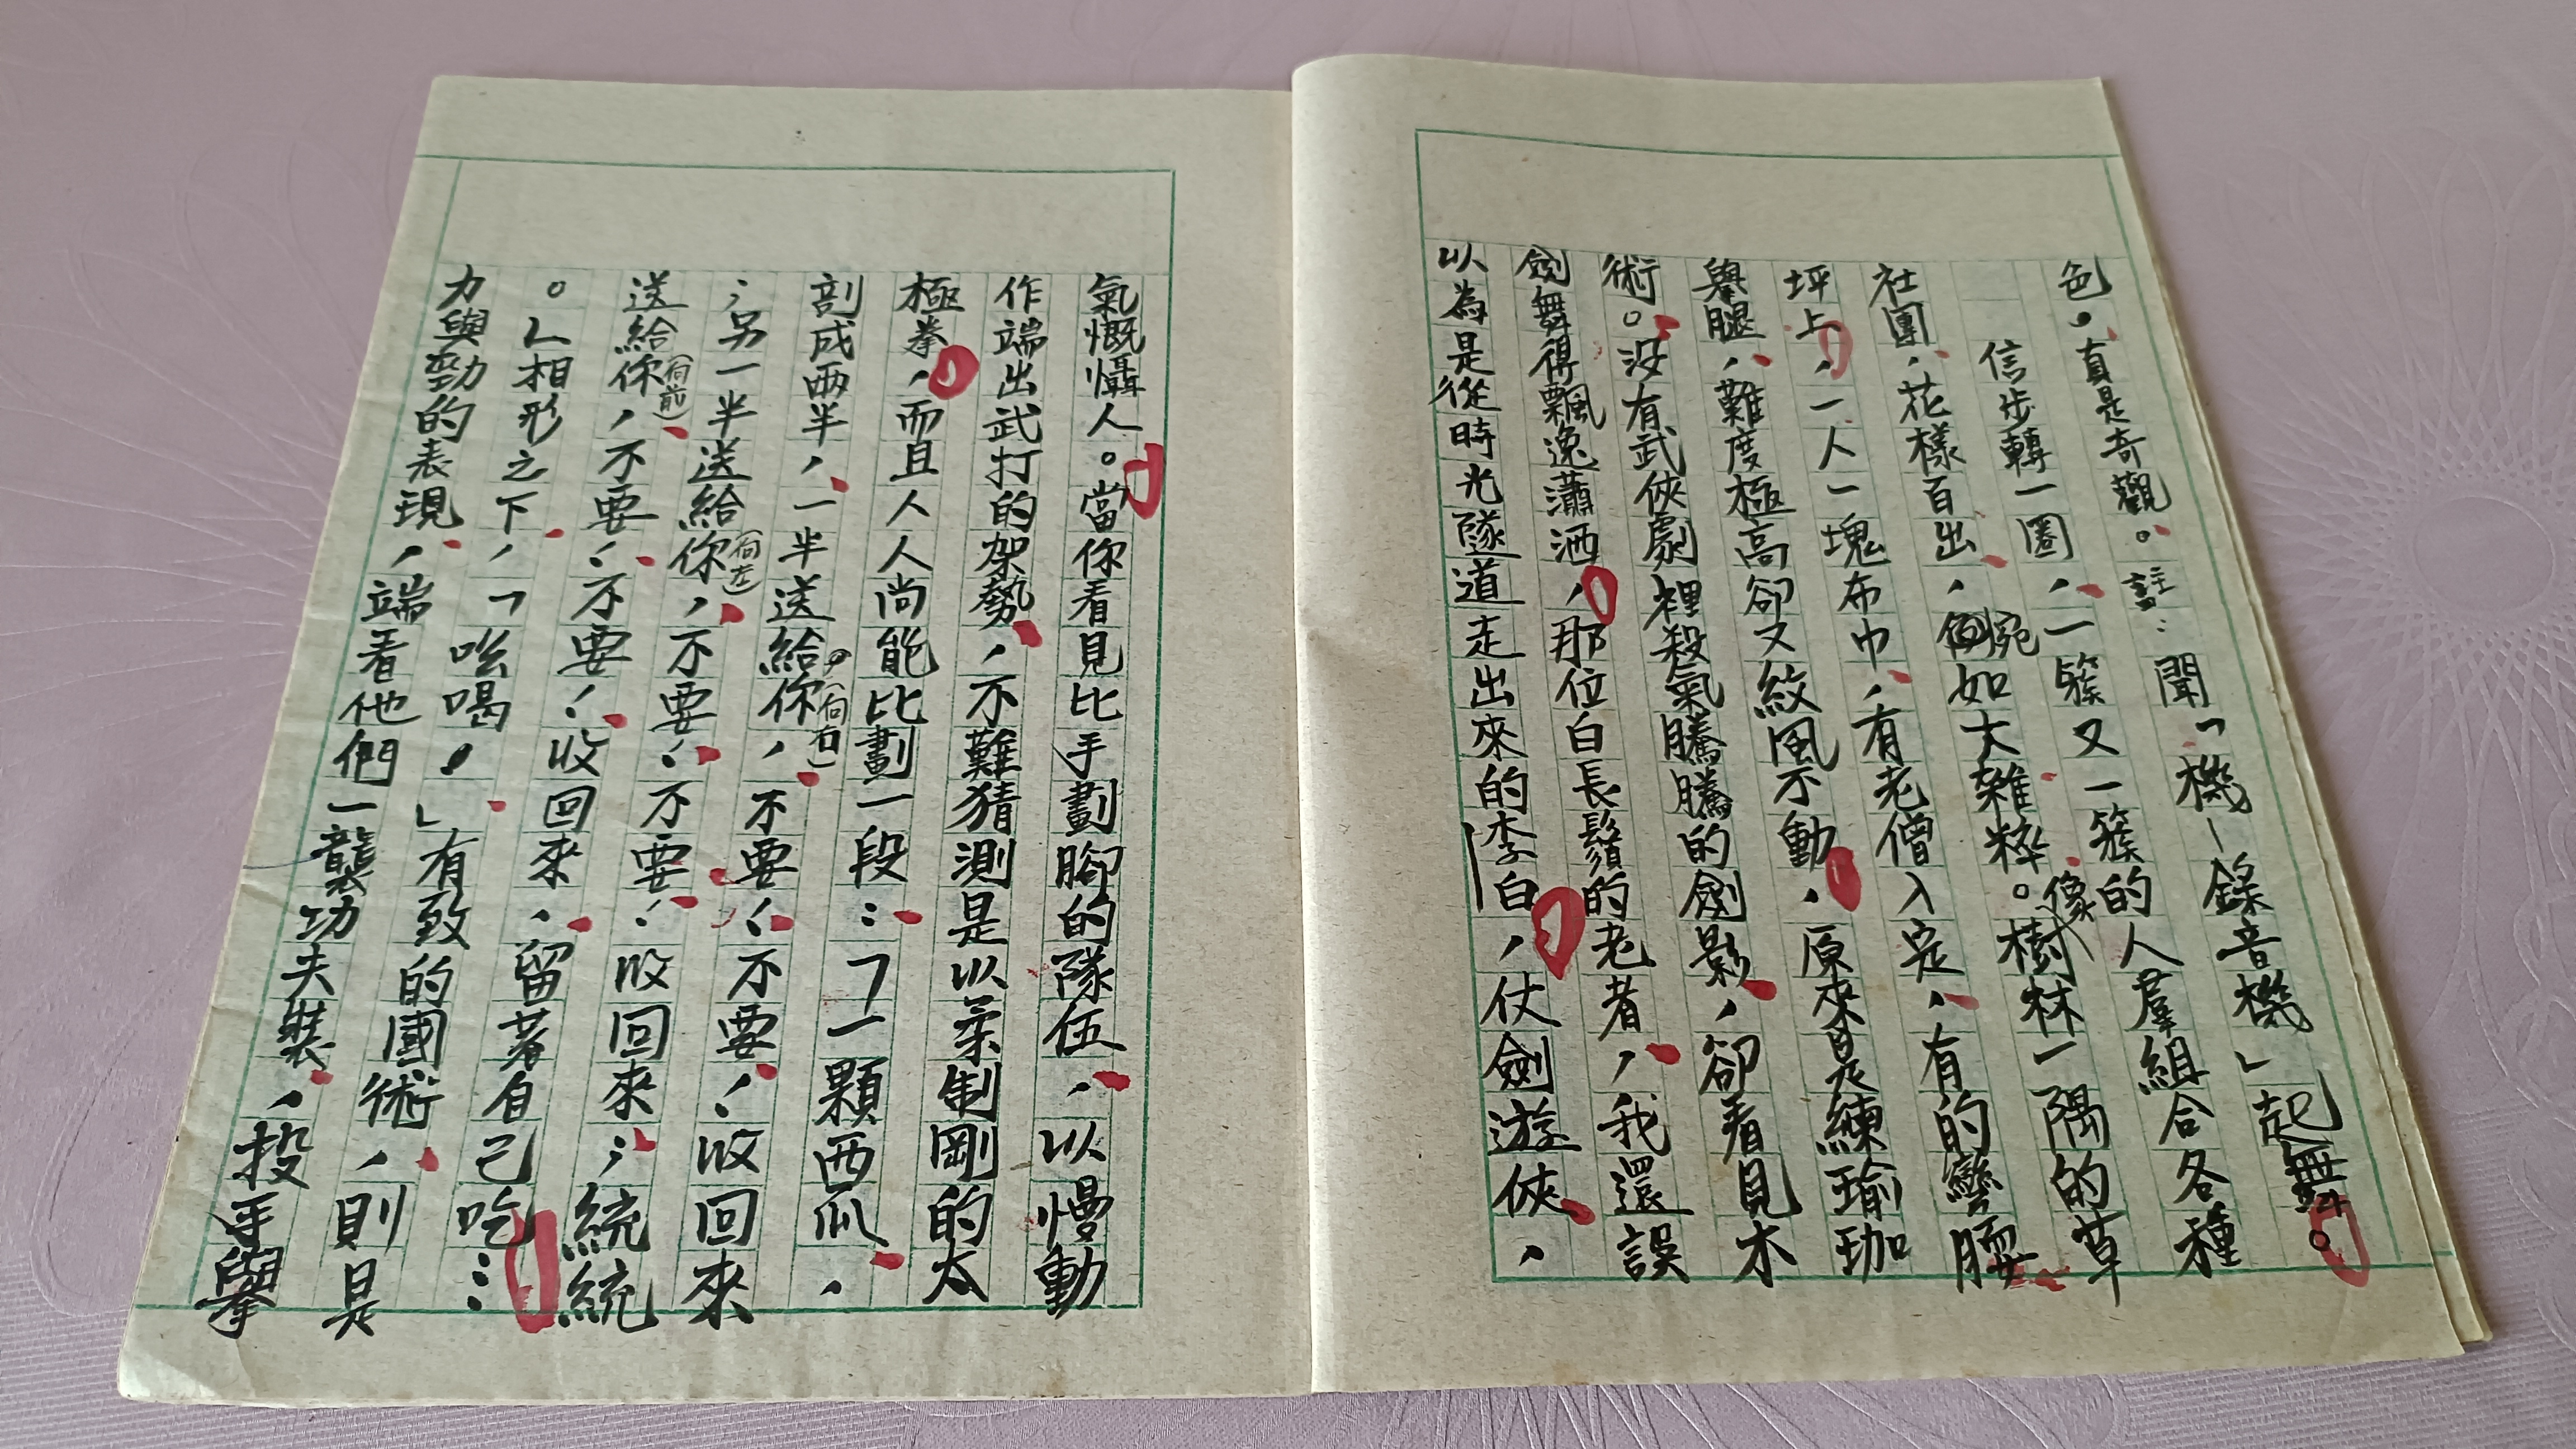 色，真是奇觀。註：聞「機—錄音機」起舞。
信步轉一圈，一簇又一簇的人羣組合各種
社團，花樣百出，宛如大雜粹。像樹林一隅的草
坪上，一人一塊布巾，有老僧入定，有的彎腰
舉腿，難度極高卻又紋風不動，原來是練瑜珈
術。沒有武俠劇裡殺氣騰騰的劍影，卻看見木
劍舞得飄逸瀟洒，那位白長鬍的老者，我還誤
以為是從時光隧道走出來的李白，仗劍遊俠，
氣慨懾人。當你看見比手劃腳的隊伍，以慢動
作端出武打的架勢，不難猜測是以柔制剛的太
極拳，而且人人尚能比劃一段：「一顆西瓜，
剖成兩半，一半送給你（向右），不要！不要！收回來
；另一半送給你（向左），不要！不要！收回來；統統
送給你（向前），不要！不要！收回來，留著自己吃！
。」相形之下，「吆喝！」有致的國術，則是
力與勁的表現，端看他們一襲功夫裝，投手舉